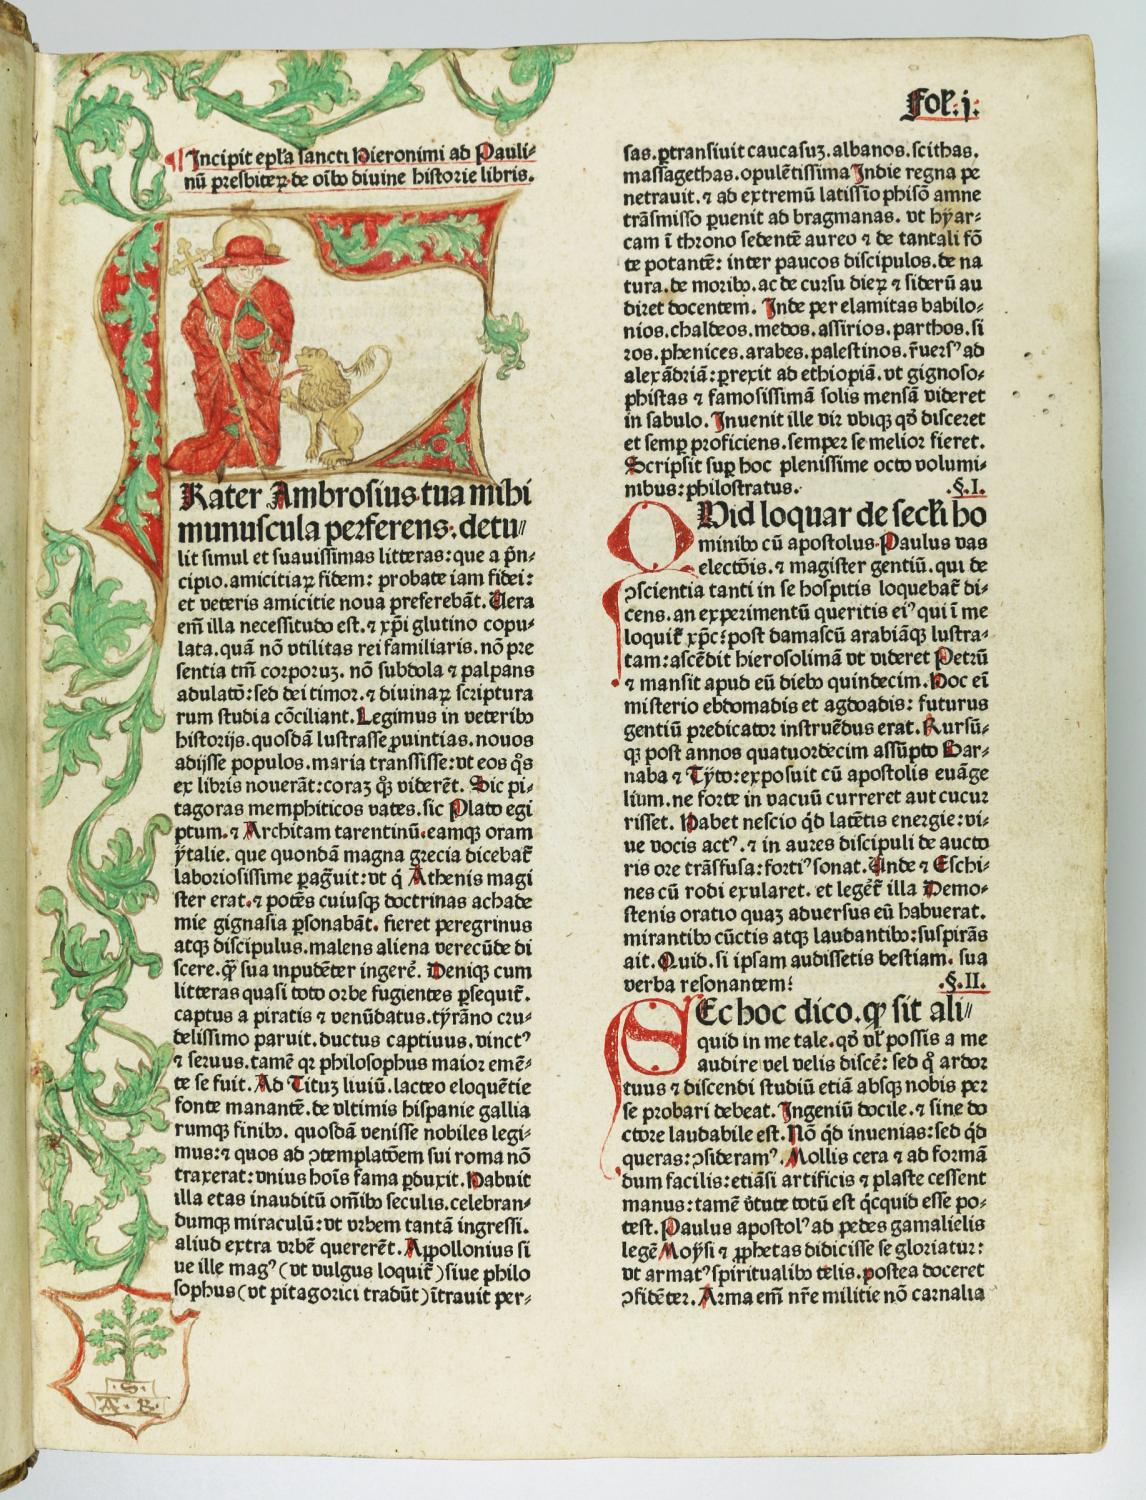 Fol. j.
Incipit epl̄a sancti Hieronimi ad Pauli-
nū presbiteꝝ de oībꝰ diuine historie libris.
Rater Ambrosius tua mihi
munuscula perferens. detu-
lit simul et suauissimas litteras: que a p̄n-
cipio. amicitiaꝝ fidem: probate iam fidei:
et veteris amicitie noua preferebāt. Uera
em̄ illa necessitudo est. ⁊ xp̄i glutino copu-
lata. quā nō vtilitas rei familiaris. nō pre
sentia tm̄ corporuꝫ. nō subdola ⁊ palpans
adulatō: sed dei timor. ⁊ diuinaꝝ scriptura
rum studia cōciliant. Legimus in veteribꝰ
historijs. quosdā lustrasse ꝓuintias. nouos
adijsse populos. maria transisse: vt eos q̄s
ex libris nouerāt: coraꝫ qꝫ viderēt. Sic pi-
tagoras memphiticos vates. sic Plato egi
ptum. ⁊ Architam tarentinū. eamqꝫ oram
ytalie. que quondā magna grecia dicebat̄
laboriosissime ꝑaḡuit: vt q̄ Athenis magi
ster erat. ⁊ potēs cuiusqꝫ doctrinas achade
mie gignasia ꝑsonabāt. fieret peregrinus
atqꝫ discipulus. malens aliena verecūde di
scere. qꝫ̄ sua inpudēter ingerē. Deniqꝫ cum
litteras quasi toto orbe fugientes ꝑsequit̄.
captus a piratis ⁊ venūdatus. tyrāno cru-
delissimo paruit. ductus captiuus. vinctꝰ
⁊ seruus. tamē qr philosophus maior emē-
te se fuit. Ad Tituꝫ liuiū. lacteo eloquētie
fonte manantē. de vltimis hispanie gallia
rumqꝫ finibꝰ. quosdā venisse nobiles legi-
mus: ⁊ quos ad ꝯtemplatōem sui roma nō
traxerat: vnius hoīs fama ꝑduxit. Habuit
illa etas inauditū om̄ibꝰ seculis. celebran-
dumqꝫ miraculū: vt vrbem tantā ingressi.
aliud extra vrbē quererēt. Appollonius si
ue ille magꝰ (vt vulgus loquit̄) siue philo
sophus (vt pitagorici tradūt) ītrauit per-
S
A. R.
sas. ꝑtransiuit caucasuꝫ. albanos. scithas.
massagethas. opulētissima Indie regna pe
netrauit. ⁊ ad extremū latissio phisō amne
trāsmisso ꝑuenit ad bragmanas. vt hyar-
cam ī throno sedentē aureo ⁊ de tantali fō
te potantē: inter paucos discipulos. de na
tura. de moribꝰ. ac de cursu dieꝝ ⁊ siderū au
diret docentem. Inde per elamitas babilo-
nios. chaldeos. medos. assirios. parthos. si
ros. phenices. arabes. palestinos. r̄uersꝰ ad
alexādriā: ꝑrexit ad ethiopiā. vt gignoso-
phistas ⁊ famosissimā solis mensā videret
in sabulo. Inuenit ille vir vbiqꝫ qd̄ disceret
et semꝑ proficiens. semper se melior fieret.
Scripsit suꝑ hoc plenissime octo volumi-
nibus: philostratus. .§. I.
QVid loquar de secl̄i ho
minibꝰ cū apostolus Paulus vas
electōis. ⁊ magister gentiū. qui de
ꝯscientia tanti in se hospitis loquebat̄ di-
cens. an experimentū queritis eiꝰ qui ī me
loquit̄ xp̄c: post damascū arabiāqꝫ lustra-
tam: ascēdit hierosolimā vt videret Petrū
⁊ mansit apud eū diebꝰ quindecim. Hoc ei̅
misterio ebdomadis et agdoadis: futurus
gentiū predicator instruēdus erat. Rursū-
qꝫ post annos quatuordecim assūpto Bar-
naba ⁊ Tyto: exposuit cū apostolis euāge
lium. ne forte in vacuū curreret aut cucur
risset. Habet nescio qd̄ latētis energie: vi-
ue vocis actꝰ. ⁊ in aures discipuli de aucto
ris ore trāsfusa: fortiꝰ sonat. Unde ⁊ Eschi-
nes cū rodi exularet. et leget̄ illa Demo-
stenis oratio quaꝫ aduersus eū habuerat.
mirantibꝰ cūctis atqꝫ laudantibꝰ: suspirās
ait. Quid. si ipsam audissetis bestiam. sua
verba resonantem: .§. II.
SEc hoc dico. ꝙ sit ali-
quid in me tale. qd̄ vl̄ possis a me
audire vel velis discē: sed q̄ ardor
tuus ⁊ discendi studiū etiā absqꝫ nobis per
se probari debeat. Ingeniū docile. ⁊ sine do
ctore laudabile est. Nō qd̄ inuenias: sed qd̄
queras: ꝯsideramꝰ. Mollis cera ⁊ ad formā
dum facilis: etiāsi artificis ⁊ plaste cessent
manus: tamē v̄tute totū est q̄cquid esse po-
test. Paulus apostolꝰ ad pedes gamalielis
legē Moysi ⁊ ꝓphetas didicisse se gloriatur:
vt armatꝰ spiritualibꝰ telis. postea doceret
ꝯfidēter. Arma em̄ nr̄e militie nō carnalia